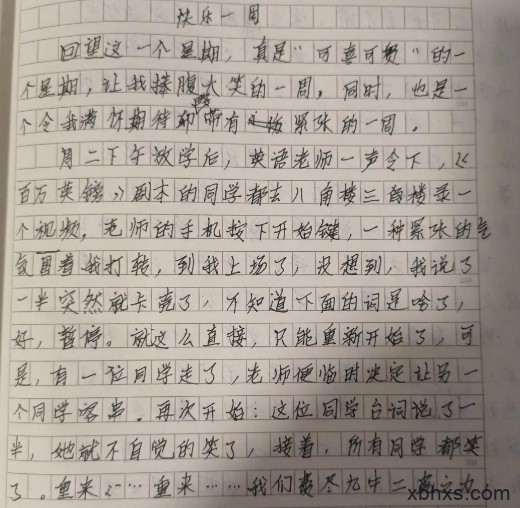 快乐一周
回望这一个星期，真是“可喜可贺”的一
个星期，让我捧腹大笑的一周，同时，也是一
个令我满怀期待却带有紧张的一周。
周二下午放学后，英语老师一声令下，《
百万英镑》副本的同学都去八角楼三首楼录一
个视频，老师的手机按下开始键，一种紧张的气
氛冒着我打转，到我上场了，没想到，我说了
一半突然就卡克了，不知道下面的词是啥了，
好，暂停。就这么直接，只能重新开始了，可
是，有一位同学走了，老师便临时决定让另一
个同学客串。再次开始：这位同学台词说了一
半，她就不自觉的笑了，接着，所有同学都笑
了。重来……重来……我们费尽九牛二虎之力
xbhxs.com